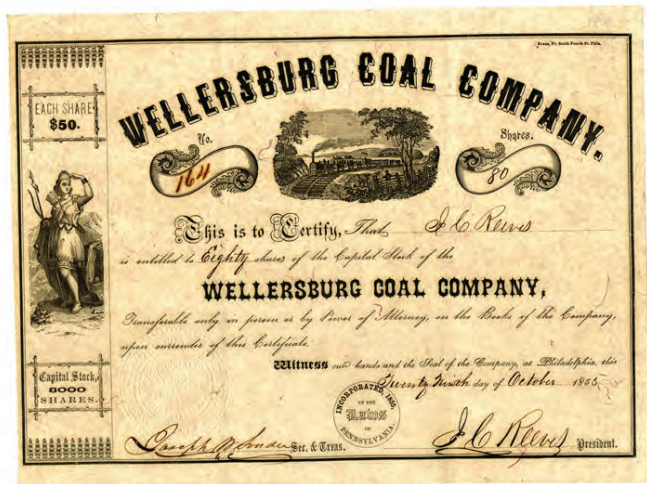 Evans, Pr. South Fourth St. Phila.
WELLERSBURG COAL COMPANY.
No.
164
Shares.
80
EACH SHARE
$50.
This is to Certify, That J C Reeves
is entitled to Eighty shares of the Capital Stock of the
WELLERSBURG COAL COMPANY,
Transferable only in person or by Power of Attorney, on the Books of the Company,
upon surrender of this Certificate.
Witness our hands and the Seal of the Company, at Philadelphia, this
Twenty Ninth day of October 1855
Capital Stock,
8000
SHARES.
INCORPORATED, 1855,
BY THE
Laws
OF
PENNSYLVANIA.
Joseph Sec. & Treas.
J C Reeves President.